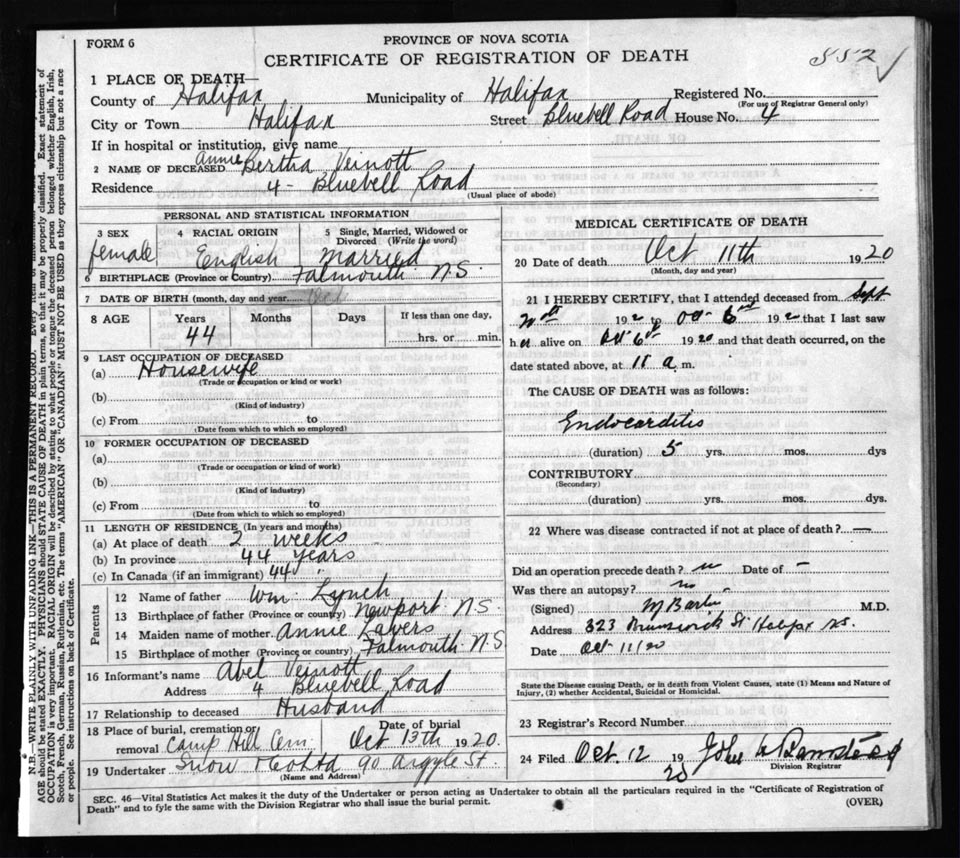 FORM 6
PROVINCE OF NOVA SCOTIA
CERTIFICATE OF REGISTRATION OF DEATH
552 ✓
1 PLACE OF DEATH—
County of Halifax Municipality of Halifax Registered No.
(For use of Registrar General only)
City or Town Halifax Street Bluebell Road House No. 4
If in hospital or institution, give name
2 NAME OF DECEASED Annie Bertha Veinott
Residence 4 - Bluebell Road
(Usual place of abode)
PERSONAL AND STATISTICAL INFORMATION
3 SEX 4 RACIAL ORIGIN 5 Single, Married, Widowed or Divorced (Write the word)
female English Married
6 BIRTHPLACE (Province or Country) Falmouth N.S
7 DATE OF BIRTH (month, day and year)
8 AGE Years Months Days If less than one day,
44 hrs. or min.
9 LAST OCCUPATION OF DECEASED
(a) Housewife
(Trade or occupation or kind of work)
(b)
(Kind of industry)
(c) From to
(Date from which to which so employed)
10 FORMER OCCUPATION OF DECEASED
(a)
(Trade or occupation or kind of work)
(b)
(Kind of industry)
(c) From to
(Date from which to which so employed)
11 LENGTH OF RESIDENCE (In years and months)
(a) At place of death 2 weeks
(b) In province 44 years
(c) In Canada (if an immigrant) 44 "
Parents
12 Name of father Wm. Lynch
13 Birthplace of father (Province or country) Newport N.S
14 Maiden name of mother Annie Lavers
15 Birthplace of mother (Province or country) Falmouth N.S
16 Informant's name Abel Veinott
Address 4 Bluebell Road
17 Relationship to deceased Husband
18 Place of burial, cremation or removal Camp Hill Cem. Date of burial Oct 13th 1920.
19 Undertaker Snow 90 Argyle St.
(Name and Address)
MEDICAL CERTIFICATE OF DEATH
20 Date of death Oct 11th 1920
(Month, day and year)
21 I HEREBY CERTIFY, that I attended deceased from Sept
192 to Oct 6 192 that I last saw
her alive on Oct 6 1920 and that death occurred, on the
date stated above, at 11 a. m.
The CAUSE OF DEATH was as follows:
Endocarditis
(duration) 5 yrs. mos. dys
CONTRIBUTORY
(Secondary)
(duration) yrs. mos. dys.
22 Where was disease contracted if not at place of death? —
Did an operation precede death? no Date of -
Was there an autopsy? no
(Signed) M.D.
Address 323 Brunswick St Halifax N.S.
Date Oct 11/20
State the Disease causing Death, or in death from Violent Causes, state (1) Means and Nature of
Injury, (2) whether Accidental, Suicidal or Homicidal.
23 Registrar's Record Number
24 Filed Oct. 12 1920 John
Division Registrar
SEC. 46—Vital Statistics Act makes it the duty of the Undertaker or person acting as Undertaker to obtain all the particulars required in the "Certificate of Registration of
Death" and to fyle the same with the Division Registrar who shall issue the burial permit. (OVER)
N.B.—WRITE PLAINLY WITH UNFADING INK—THIS IS A PERMANENT RECORD. Every item
AGE should be stated EXACTLY. PHYSICIANS should STATE CAUSE OF DEATH in plain terms, so that it may be properly classified. Exact statement of
OCCUPATION is very important. RACIAL ORIGIN will be described by stating to what people or tongue the deceased person belonged whether English, Irish,
Scotch, French, German, Russian, Ruthenian, etc. The terms "AMERICAN" OR "CANADIAN" MUST NOT BE USED as they express citizenship but not a race
or people. See instructions on back of Certificate.